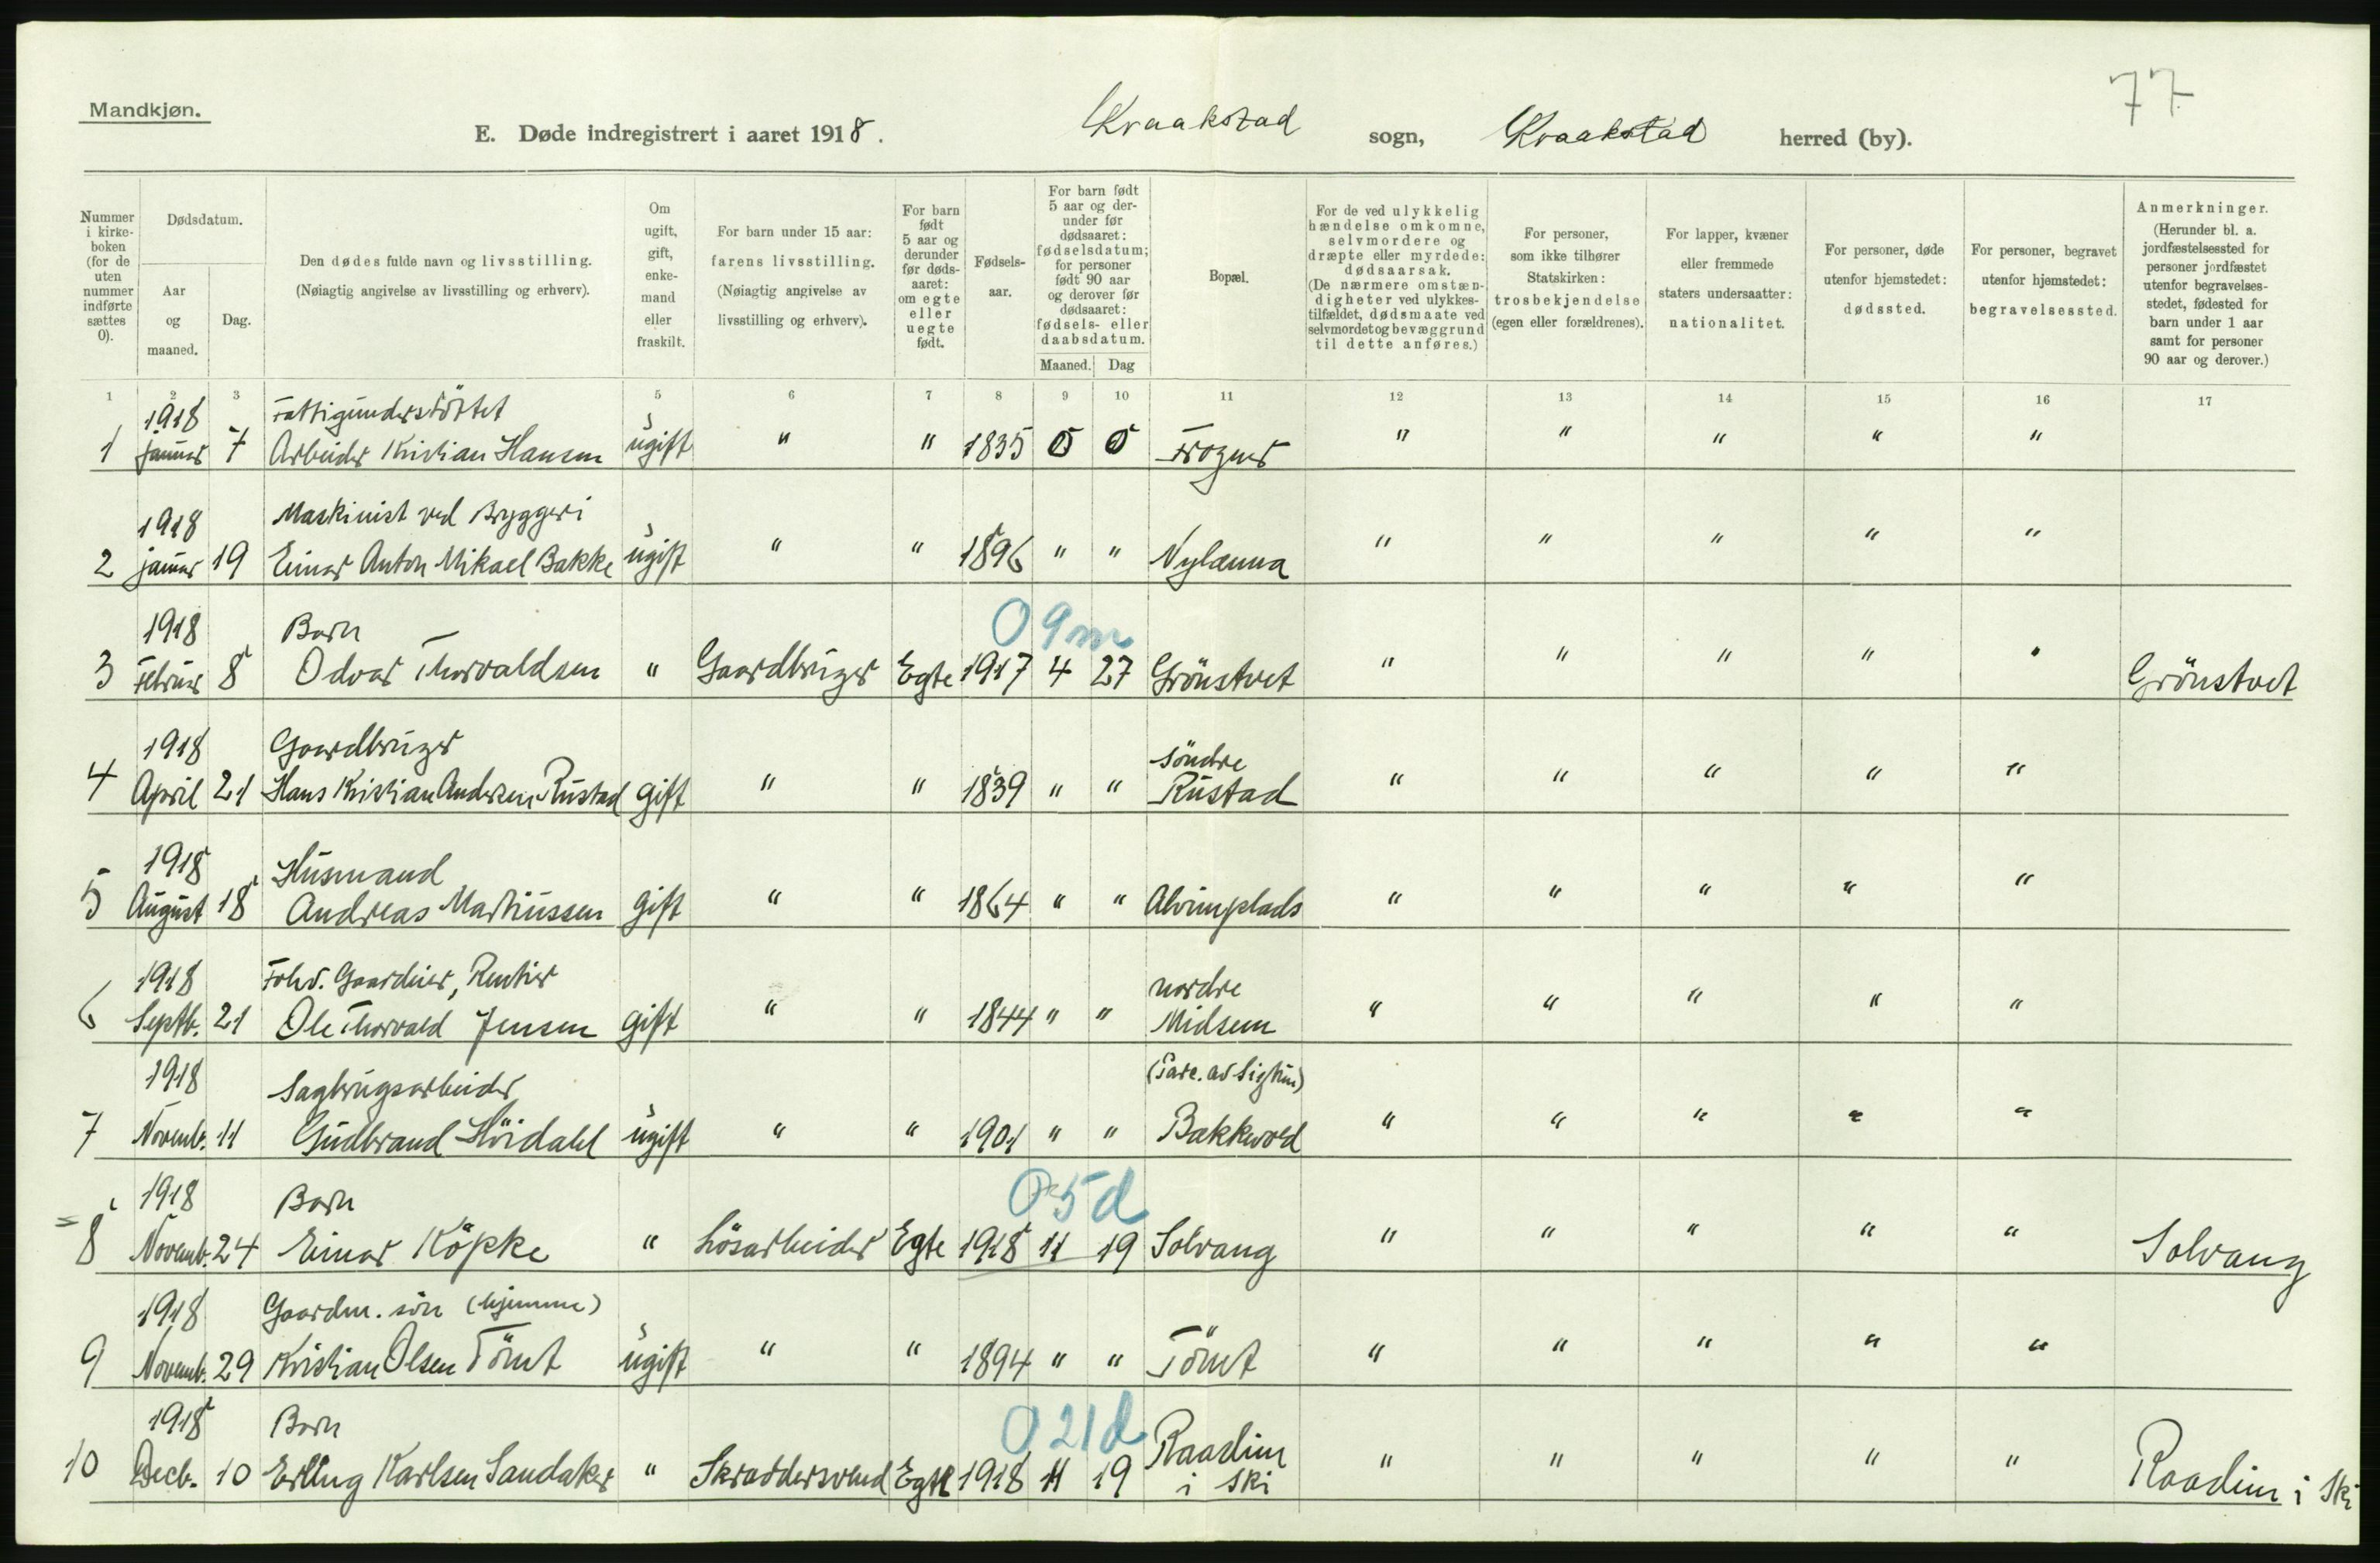 77
Mandkjøn.
E. Døde indregistrert i aaret 1918. Kraakstad sogn, Kraakstad herred (by).
Nummer i kirke- boken (for de uten nummer indførte sættes 0).
Dødsdatum.
Aar og maaned.
Dag.
Den dødes fulde navn og livsstilling.
(Nøiagtig angivelse av livsstilling og erhverv).
Om ugift, gift, enke- mand eller fraskilt.
For barn under 15 aar: farens livsstilling. (Nøiagtig angivelse av livsstilling og erhverv).
For barn født 5 aar og derunder før døds- aaret: om egte eller uegte født.
Fødsels- aar.
For barn født 5 aar og der- under før dødsaaret: fødselsdatum; for personer født 90 aar og derover før dødsaaret: fødsels- eller daabsdatum.
Maaned. Dag
Bopæl.
For de ved ulykkelig hændelse omkomne, selvmordere og dræpte eller myrdede: dødsaarsak. (De nærmere omstæn- digheter ved ulykkes- tilfældet, dødsmaate ved selvmordet og bevæggrund til dette anføres.)
For personer, som ikke tilhører Statskirken: trosbekjendelse (egen eller forældrenes).
For lapper, kvæner eller fremmede staters undersaatter: nationalitet.
For personer, døde utenfor hjemstedet: dødssted.
For personer, begravet utenfor hjemstedet: begravelsessted.
Anmerkninger. (Herunder bl. a. jordfæstelsessted for personer jordfæstet utenfor begravelses- stedet, fødested for barn under 1 aar samt for personer 90 aar og derover.)
1 2 3 5 6 7 8 9 10 11 12 13 14 15 16 17
1918 Fattigunderstöttet
1 januar 7 Arbeider Kristian Hansen ugift " " 1835 0 0 Frogner " " " " "
1918 Maskinist ved Bryggeri
2 januar 19 Einar Anton Mikael Bakke ugift " " 1896 " " Nylænna " " " " "
1918 Barn 0 9m
3 Februar 8 Odvar Thorvaldsen " Gaardbruger Egte 1917 4 27 Grönstvet " " " " " Grönstvet
1918 Gaardbruger söndre
4 April 21 Hans Kristian Andersen Rustad gift " " 1839 " " Rustad " " " " "
1918 Husmand
5 August 18 Andreas Martiussen gift " " 1864 " " Alvimplads " " " " "
1918 Forhv. Gaardeier, Rentier nordre
6 Septb. 21 Ole Thorvald Jensen gift " " 1844 " " Midsem " " " " "
1918 Sagbrugsarbeider
7 Novemb. 11 Gudbrand Höidahl ugift " " 1901 " " Bakkevold " " " " "
1918 Barn 0 5d
8 Novemb. 24 Einar Köpke " Lösarbeider Egte 1918 11 19 Solvang " " " " " Solvang
1918 Gaardm. sön (hjemme)
9 Novemb. 29 Kristian Olsen Tömt ugift " " 1894 " " Tömt " " " " "
1918 Barn 0 21d Raadim
10 Decb. 10 Erling Karlsen Sandaker " Skræddersvend Egte 1918 11 19 i Ski " " " " " Raadim i Ski